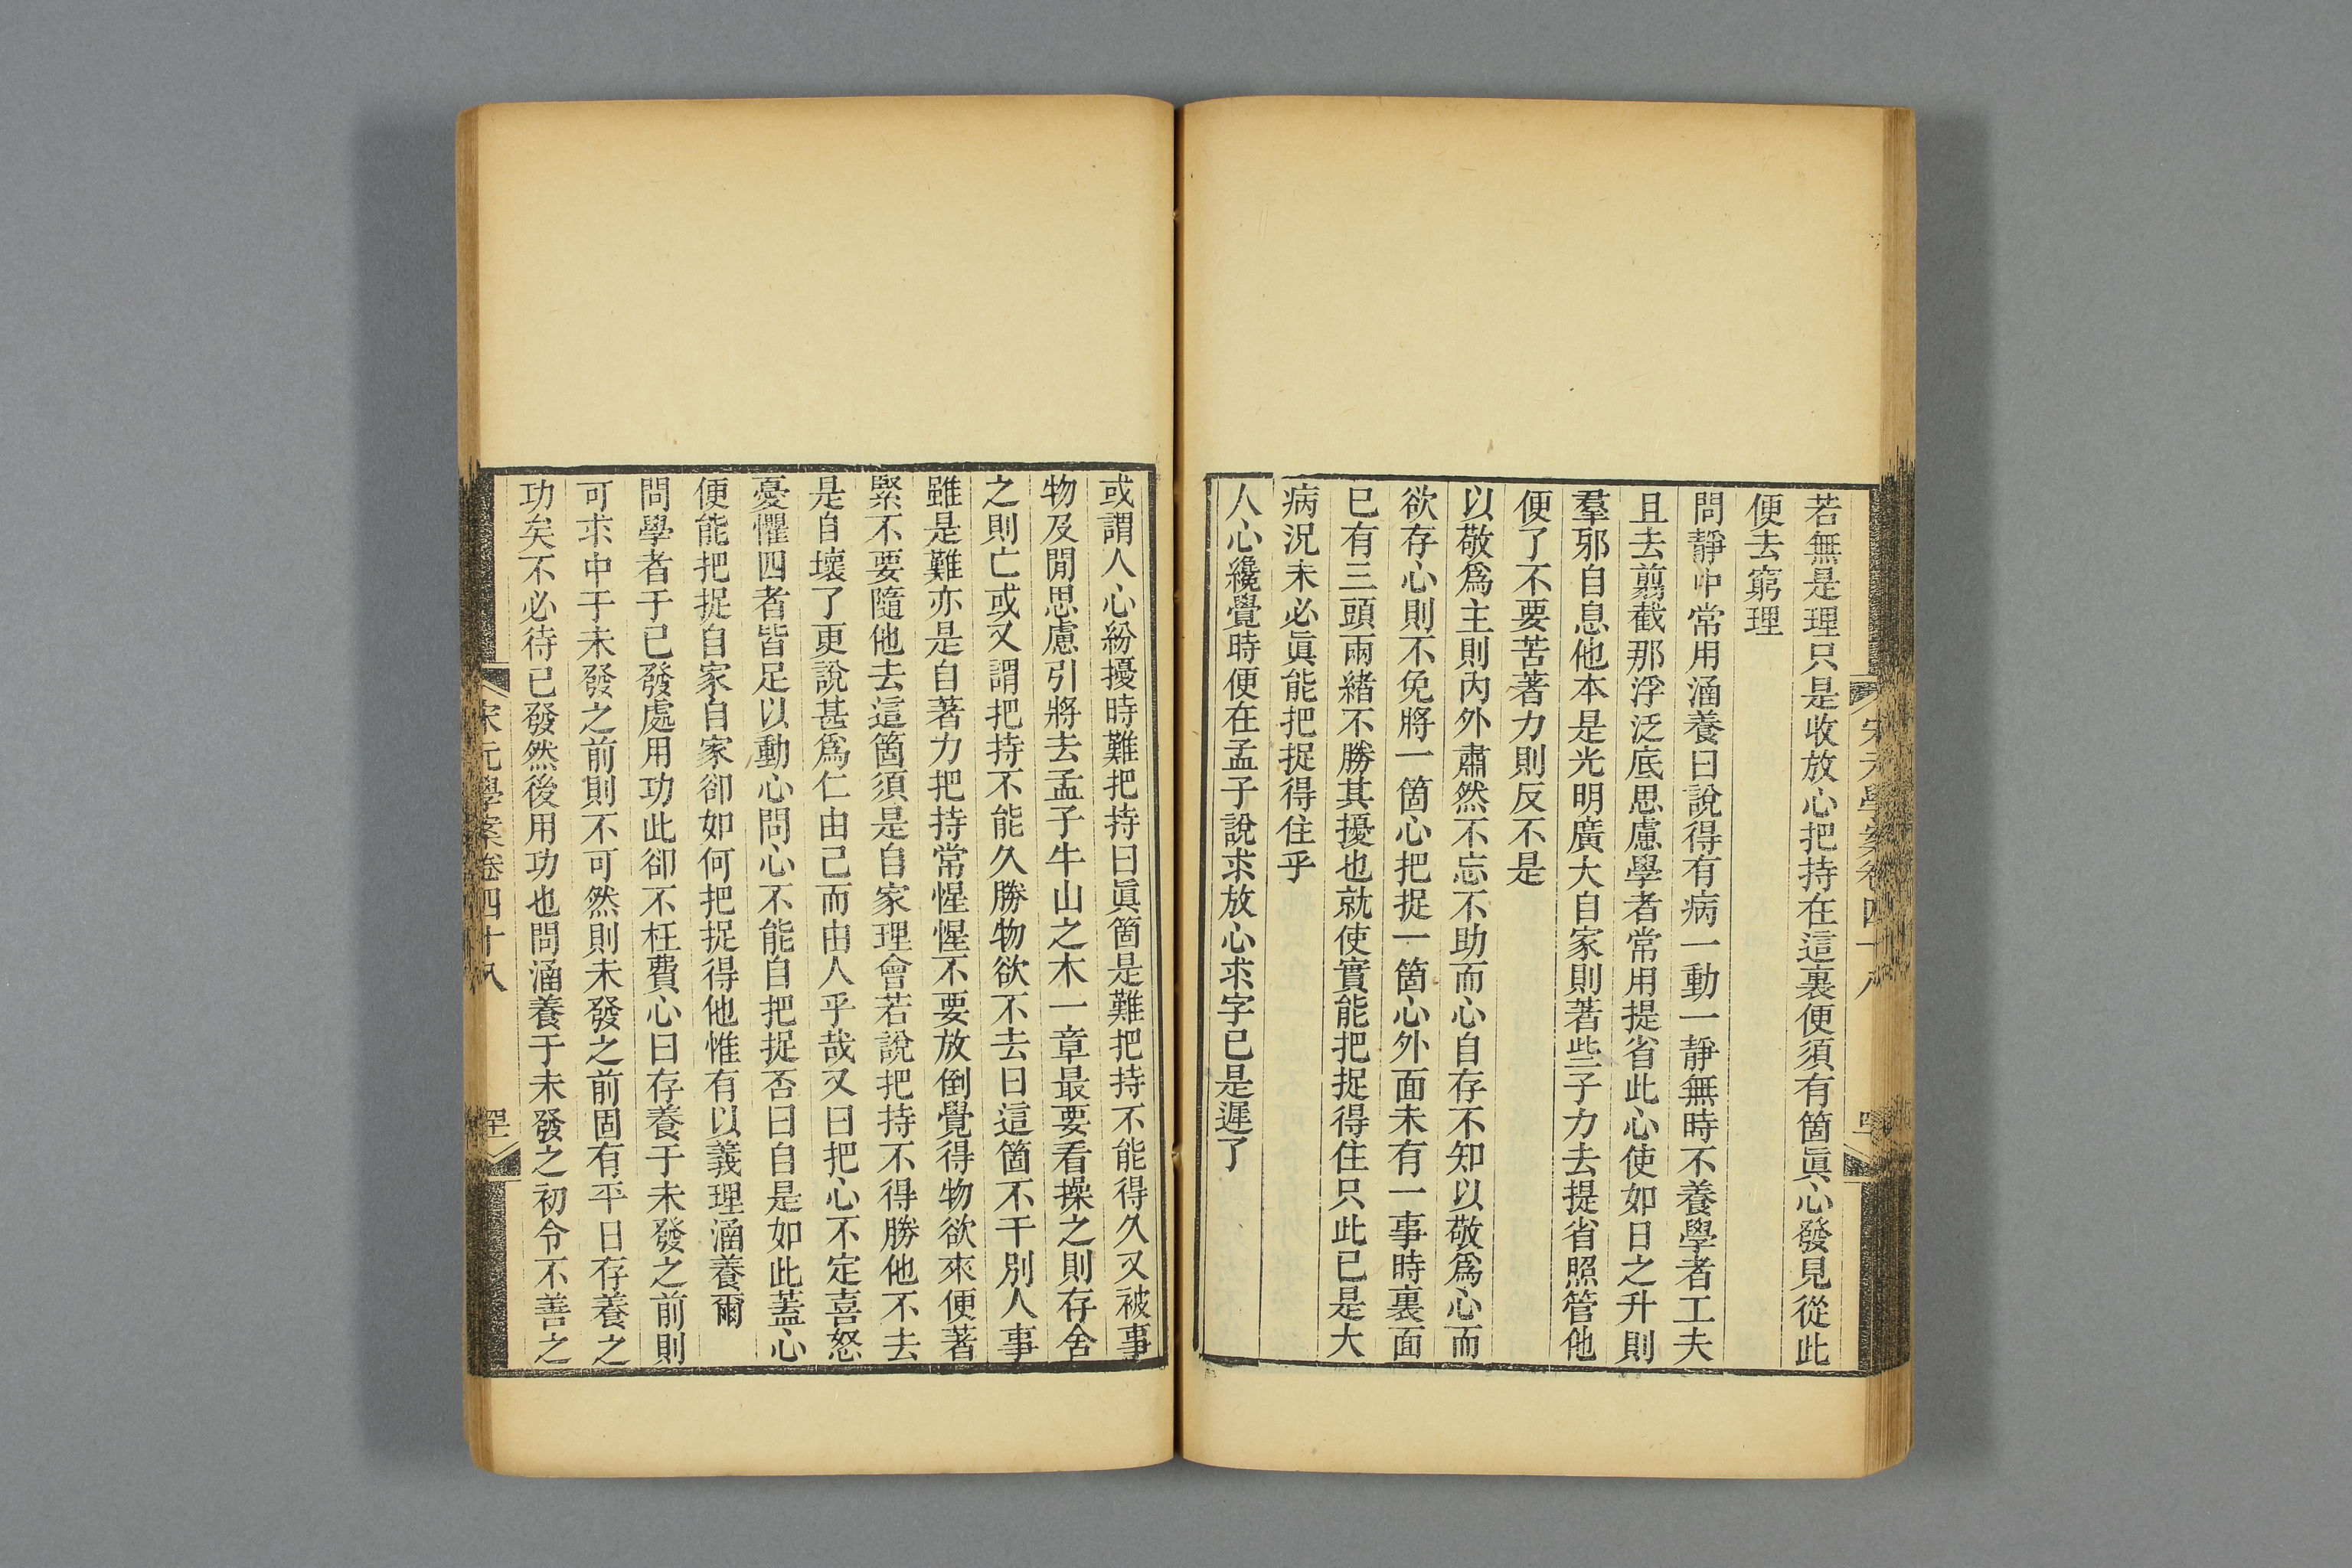 宋元學案卷四十八
若無是理只是收放心把持在這裏便須有箇眞心發見從此
便去窮理
問靜中常用涵養曰說得有病一動一靜無時不養學者工夫
且去翦截那浮泛底思慮學者常用提省此心使如日之升則
羣邪自息他本是光明廣大自家則著些子力去提省照管他
便了不要苦著力則反不是
以敬爲主則內外肅然不忘不助而心自存不知以敬爲心而
欲存心則不免將一箇心把捉一箇心外面未有一事時裏面
已有三頭兩緒不勝其擾也就使實能把捉得住只此已是大
病況未必眞能把捉得住乎
人心纔覺時便在孟子說求放心求字已是遲了
或謂人心紛擾時難把持曰眞箇是難把持不能得久又被事
物及閒思慮引將去孟子牛山之木一章最要看操之則存舍
之則亡或又謂把持不能久勝物欲不去曰這箇不干別人事
雖是難亦是自著力把持常惺惺不要放倒覺得物欲來便著
緊不要隨他去這箇須是自家理會若說把持不得勝他不去
是自壞了更說甚爲仁由己而由人乎哉又曰把心不定喜怒
憂懼四者皆足以動心問心不能自把捉否曰自是如此蓋心
便能把捉自家自家卻如何把捉得他惟有以義理涵養爾
問學者于已發處用功此卻不枉費心曰存養于未發之前則
可求中于未發之前則不可然則未發之前固有平日存養之
功矣不必待已發然後用功也問涵養于未發之初令不善之
宋元學案卷四十八